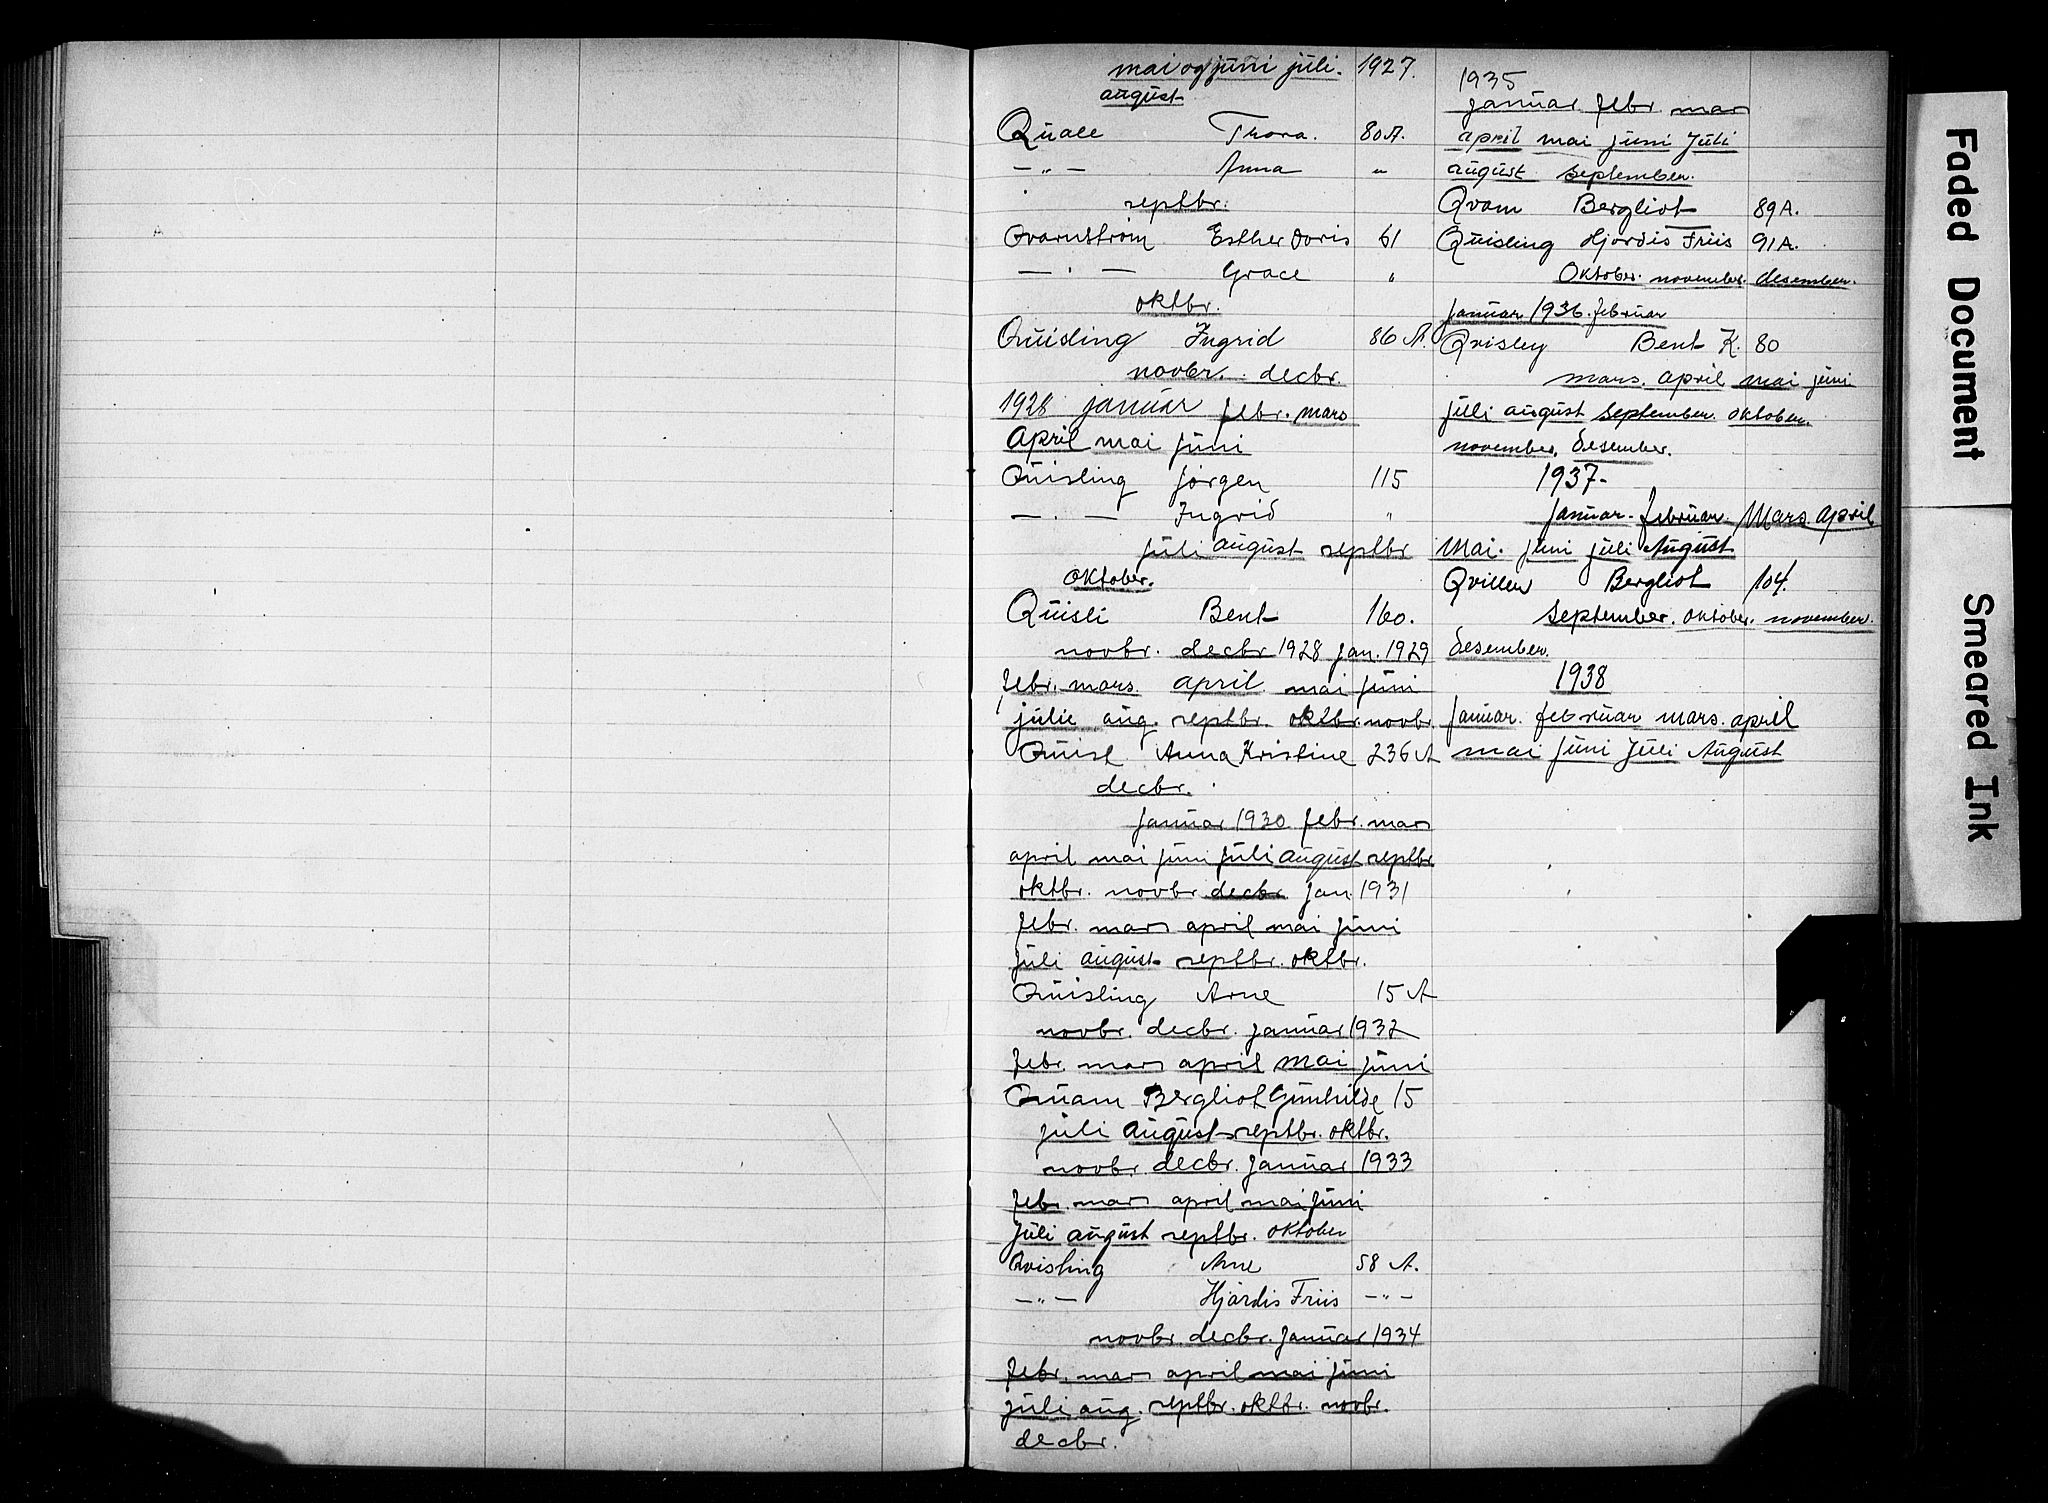 mai og juni juli. 1927.
august
Quale Thora. 80 A.
— " — Anna "
septbr.
Qvarnstrøm Esther Doris 61
— . — Grace "
oktbr.
Quisling Ingrid 86 A.
novbr. decbr.
1928 januar febr. mars
April mai juni
Quisling Jørgen 115
— . — Ingrid "
juli august septbr
oktober.
Quisli Bent 160.
novbr. decbr 1928 jan. 1929
febr. mars. april. mai juni
julie aug. septbr. oktbr. novbr.
Quist Anna Kristine 236 A
decbr.
januar 1930 febr. mars
april mai juni juli august septbr
oktbr. novbr decbr. jan. 1931
febr. mars april mai juni
juli august septbr. oktbr.
Quisling Arne 15 A
novbr. decbr. januar 1932
febr. mars april mai juni
Quam Bergliot Gunhilde 15
juli august septbr. oktbr.
novbr. decbr. januar 1933
febr. mars april mai juni
juli august septbr. oktober
Qvisling Arne 58 A.
— " — Hjørdis Friis — " —
novbr. decbr. januar 1934
febr. mars april mai juni
juli aug. septbr. oktbr. novbr.
decbr.
1935
januar. febr. mars
april mai juni Juli
august september.
Qvam Bergliot 89 A.
Quisling Hjørdis Friis 91 A.
Oktober. november. desember.
januar 1936. februar
Qvisley Bent K. 80
mars. april mai juni
juli august september. oktober.
november. desember.
1937-
Januar. februar. Mars. april
Mai. juni juli August
Qvillen Bergliot 104.
September. oktober. november.
desember.
1938
Januar. februar mars. april
mai juni Juli August
Faded Document
Smeared Ink